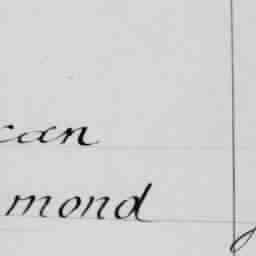 can
mond